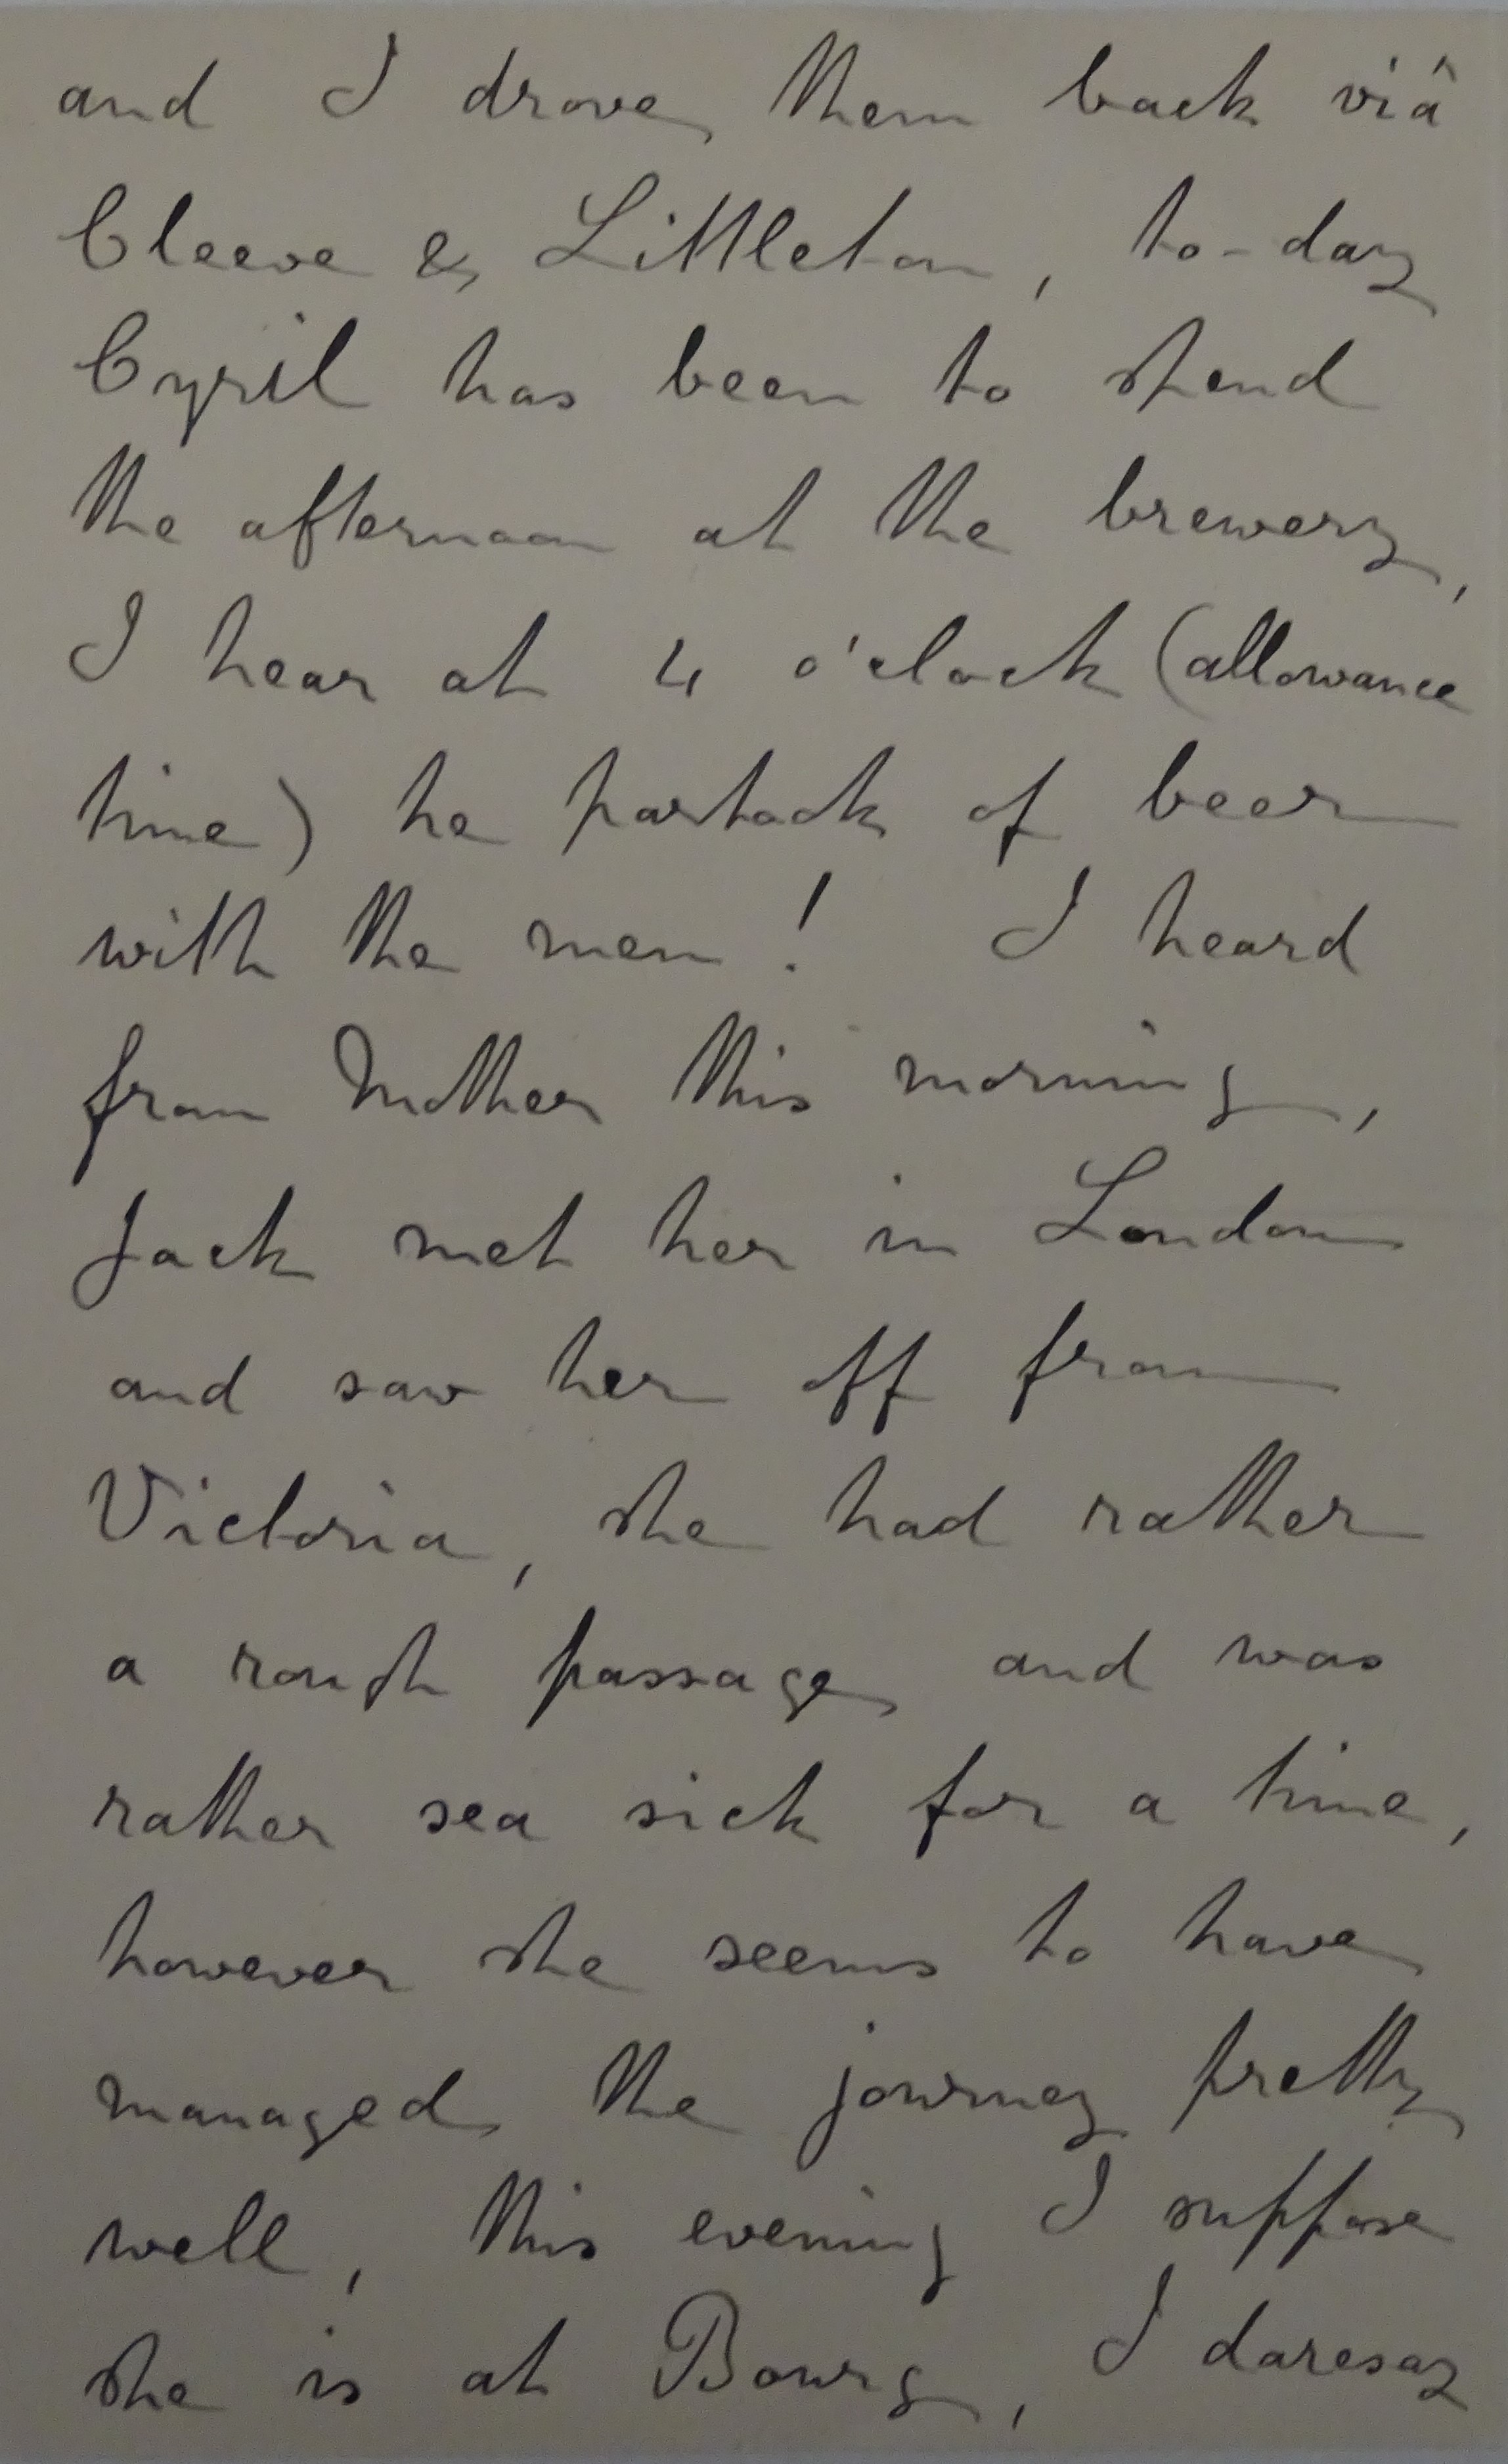 and I drove them back viâ
Cleeve & Littleton, to-day
Cyril has been to spend
the afternoon at the brewery,
I hear at 4 o'clock (allowance
time) he partook of beer
with the men! I heard
from Mother this morning,
Jack met her in London
and saw her off from
Victoria, she had rather
a rough passage and was
rather sea sick for a time,
however she seems to have
managed the journey pretty
well, this evening I suppose
she is at Bourg, I daresay